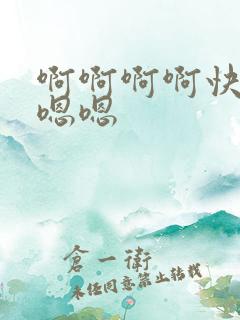 啊啊啊啊快
嗯嗯
倉一衛
未经同意禁止转载